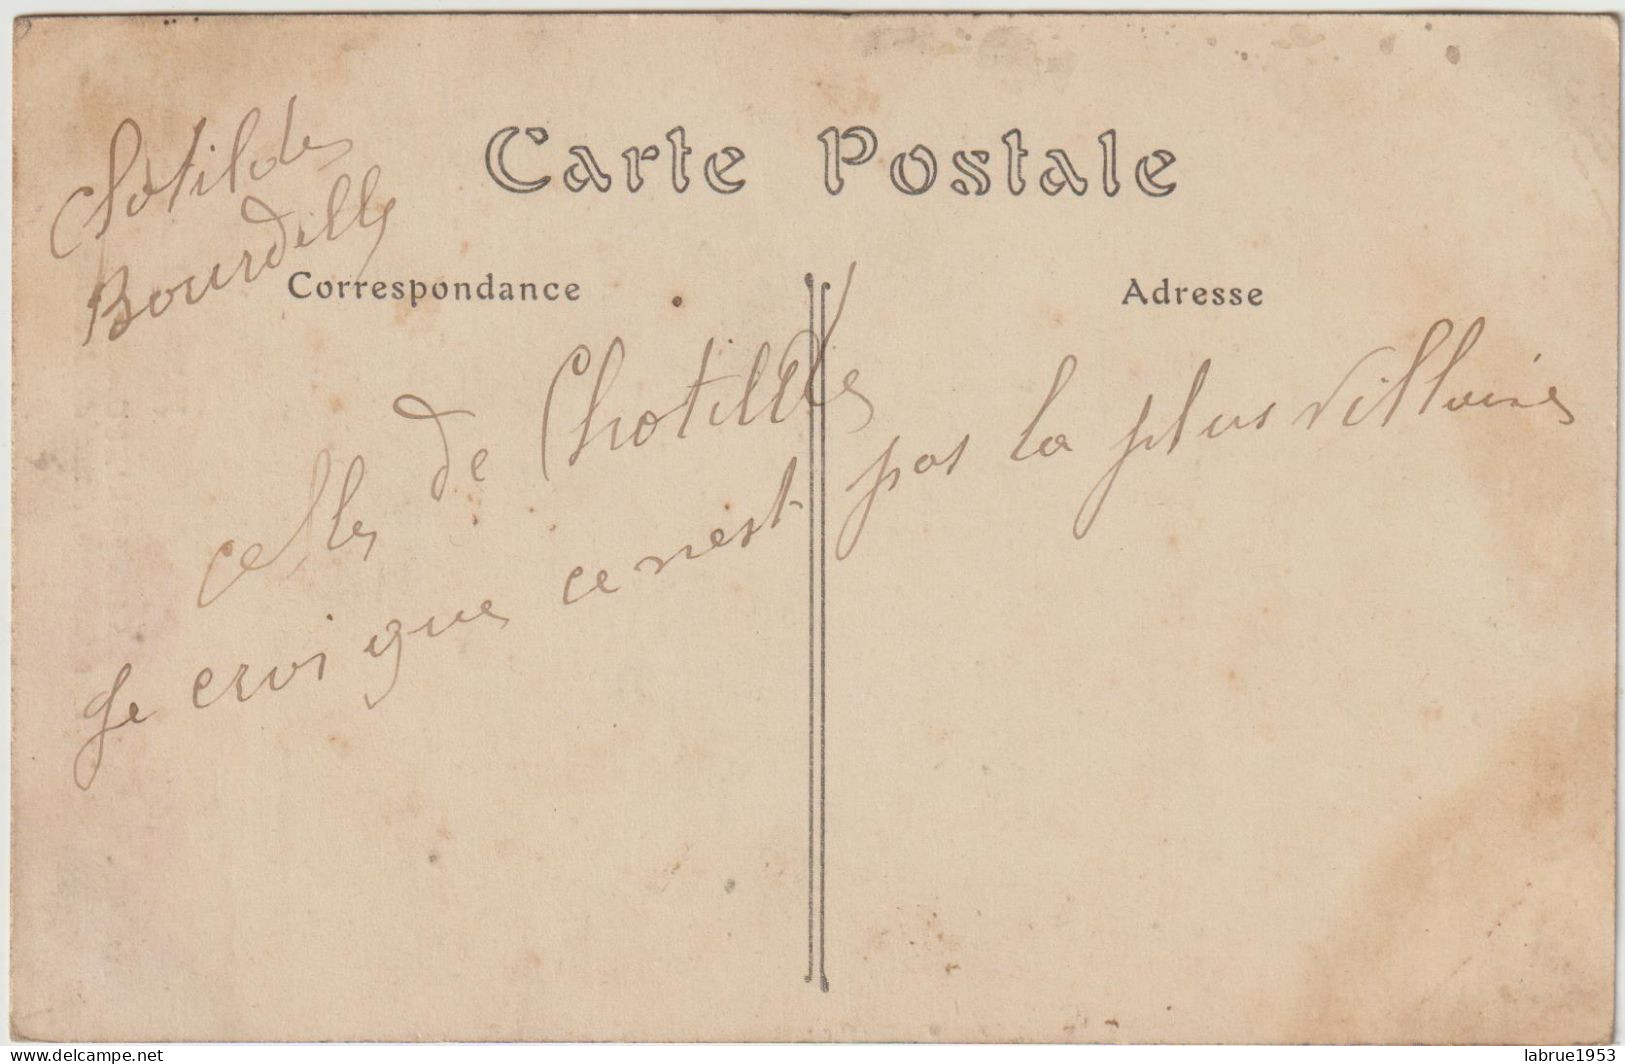 Carte Postale
Clotilde
Bourdelle
Correspondance
Adresse
celle de Chotilde
Je croi que ce nest pas la plus villaine
www.delcampe.net
labrue1953